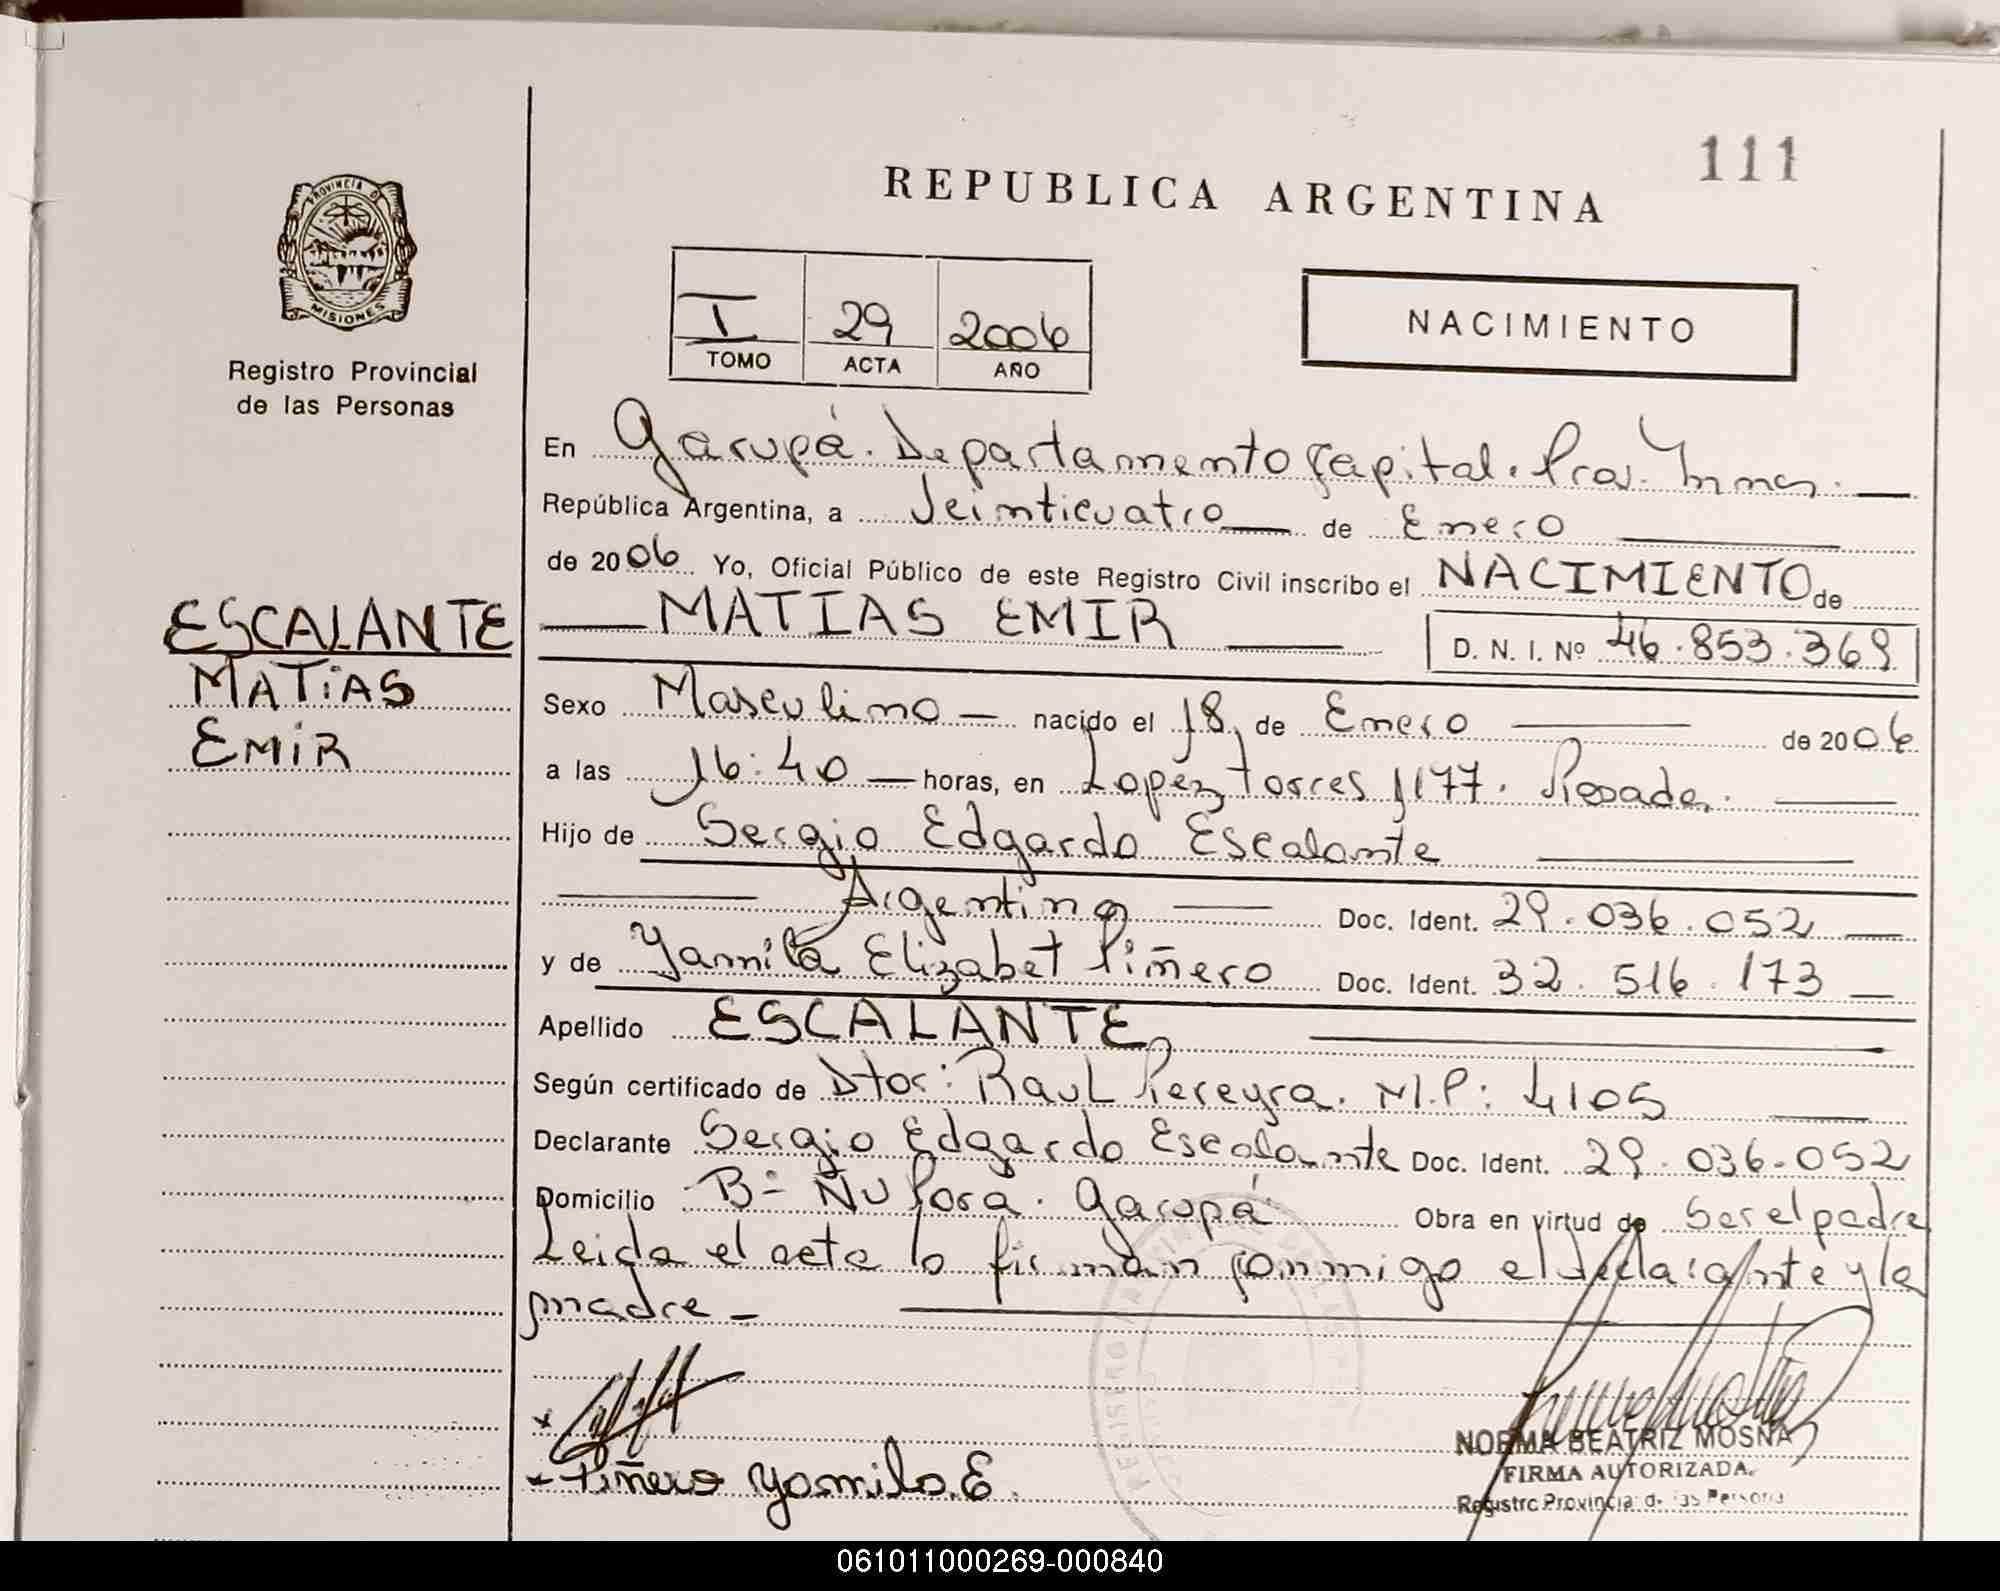 111
REPUBLICA ARGENTINA
PROVINCIA DE
MISIONES
Registro Provincial
de las Personas
I 29 2006
TOMO ACTA AÑO
NACIMIENTO
En Garupá. Departamento Capital. Prov. Mnes.
República Argentina, a Veinticuatro de Enero
de 2006 Yo, Oficial Público de este Registro Civil inscribo el NACIMIENTO de
ESCALANTE
MATIAS
EMIR
MATIAS EMIR D. N. I. Nº 46.853.369
Sexo Masculino nacido el 18 de Enero de 2006
a las 16:40 horas, en Lopez Torres 1177. Posadas.
Hijo de Sergio Edgardo Escalante
Argentina Doc. Ident. 29.036.052
y de Yamila Elizabet Piñero Doc. Ident. 32.516.173
Apellido ESCALANTE
Según certificado de Dtor: Raul Pereyra. M.P: 4105
Declarante Sergio Edgardo Escalante Doc. Ident. 29.036.052
Domicilio B= Ñu Pora. Garupá Obra en virtud de Ser el padre
Leida el acta la firman conmigo el declarante y la
madre
x
x Piñero Yamila.E
NORMA BEATRIZ MOSNA
FIRMA AUTORIZADA
Registro Provincial de las Personas
061011000269-000840